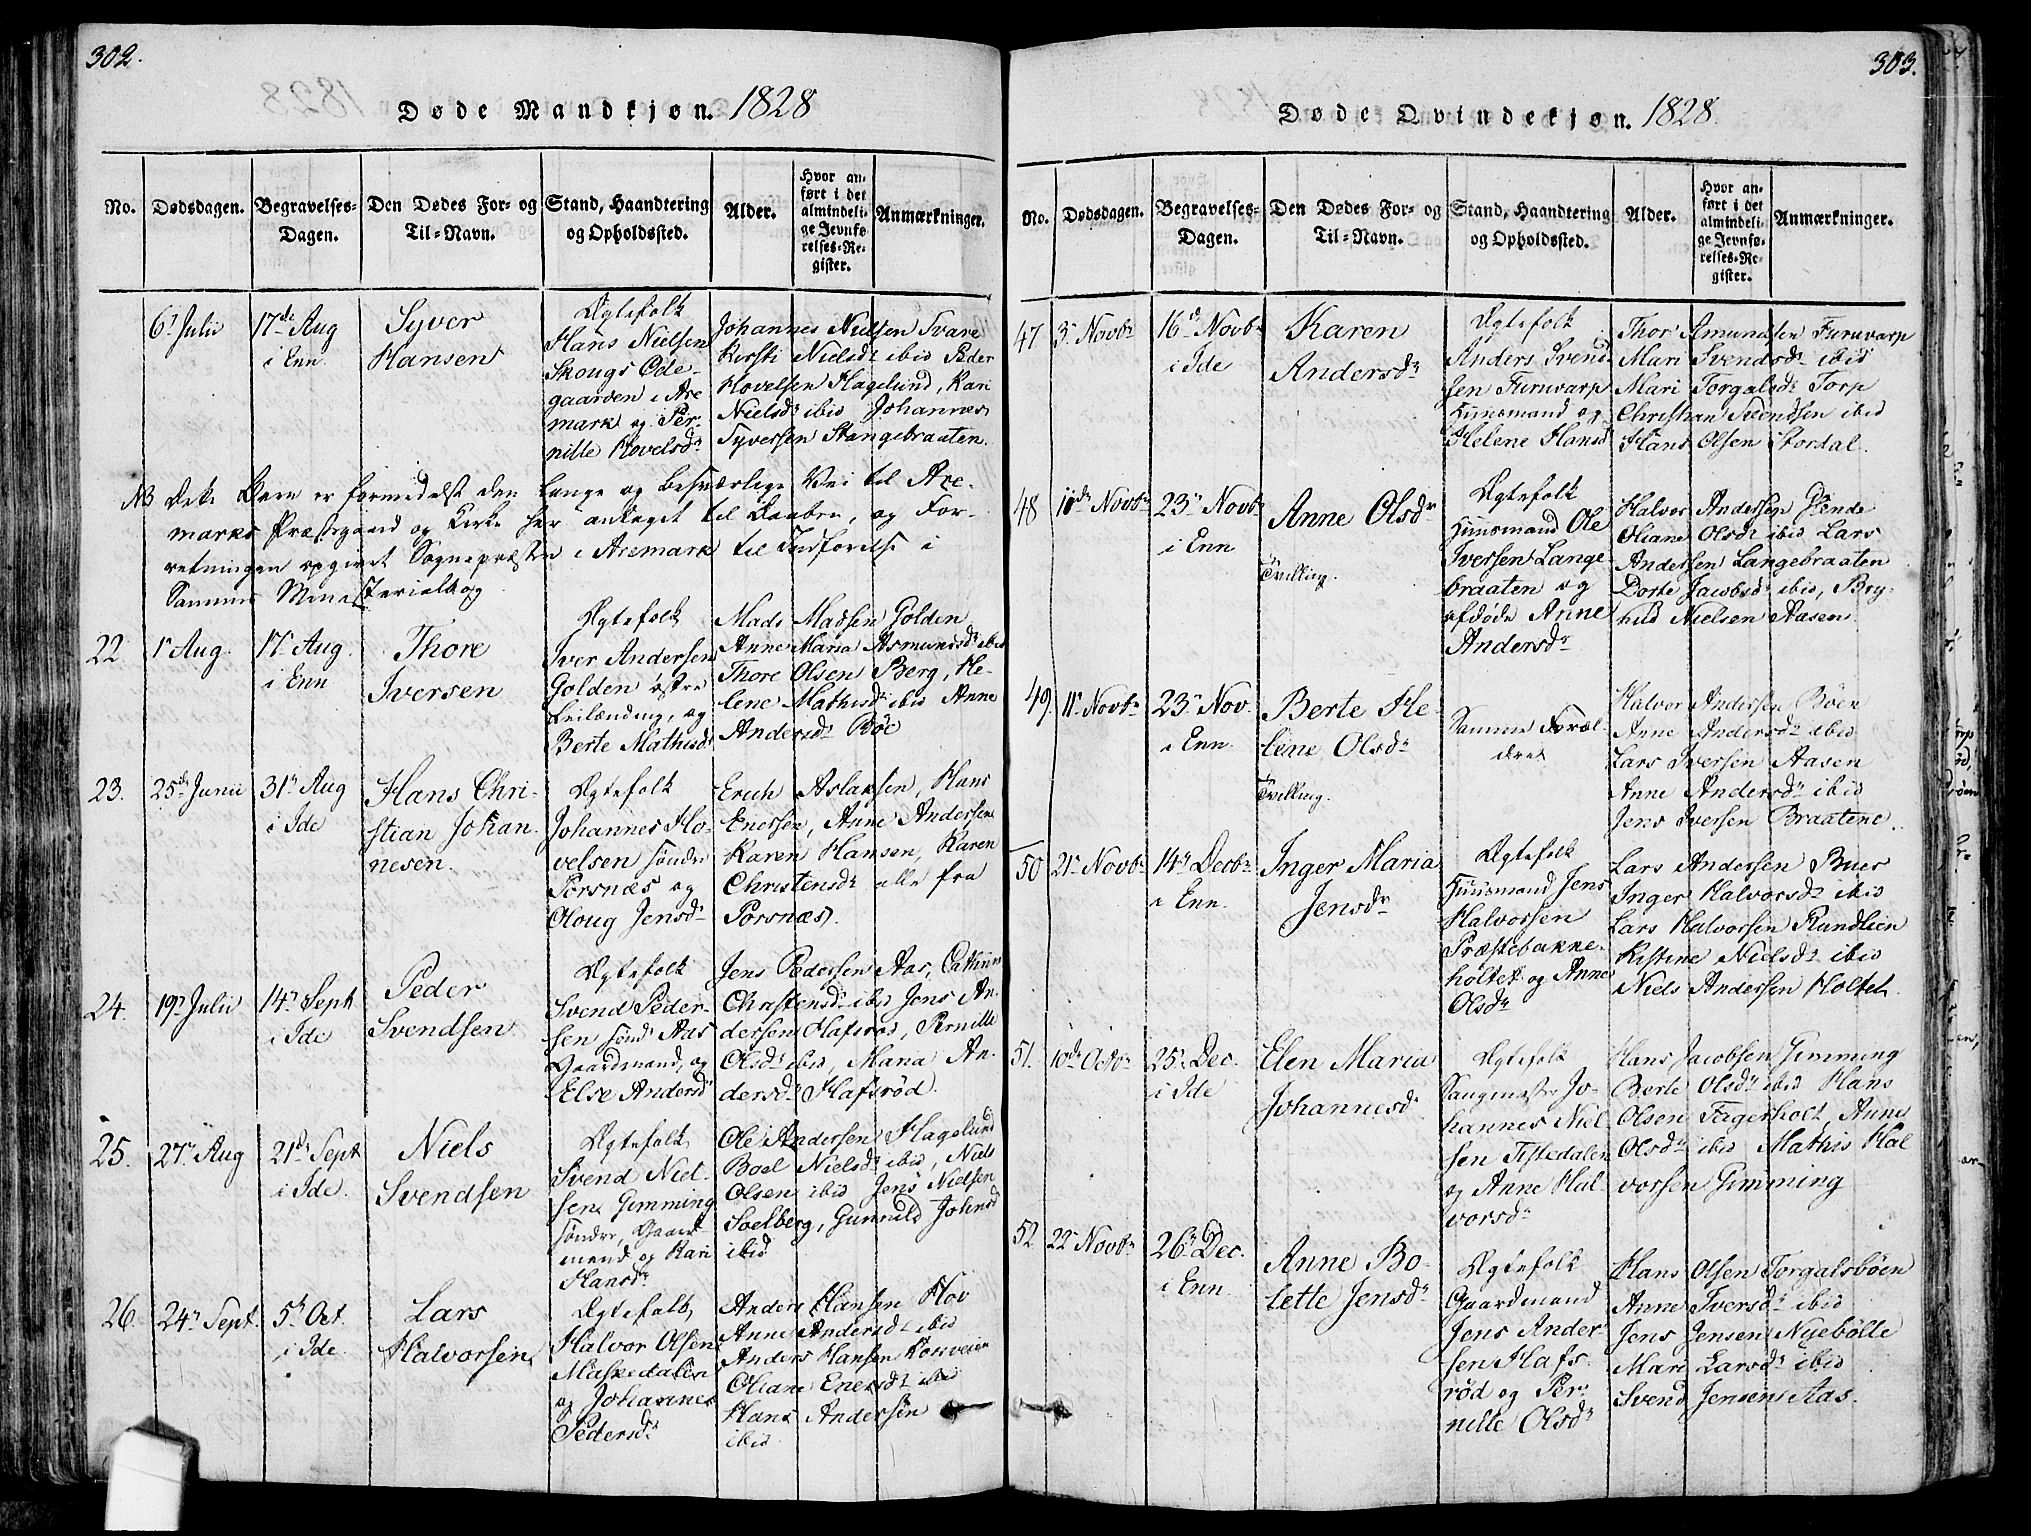 302.
Døde Mandkjøn. 1828
No.
Dødsdagen.
Begravelses-
Dagen.
Den Dødes For- og
Til-Navn.
Stand, Haandtering
og Opholdssted.
Alder.
Hvor an-
ført i det
almindeli-
ge Jevnfø-
relses-Re-
gister.
Anmærkninger.
6t Julii
17de Aug
i Enn
Syver
Hansen
Ægtefolk
Hans Nielsen
Skougs Øde-
gaarden i Are
mark og Per-
nille Hovelsdr
Johannes Nielsen Svare
Kersti Nielsdr ibid Peder
Hovelsen Hagelund, Kari
Nielsdr ibid Johannes
Syversen Stangebraaten.
NB Dette Barn er formedelst den lange og besværlige Vei til Are-
marks Præstegaard og Kirke her antaget til Daaben, og For-
retningen opgivet Sognepræsten i Aremark til Indførelse i
Sammes Ministerialbog
22
1r Aug.
17r Aug.
i Enn
Thore
Iversen
Ægtefolk
Iver Andersen
Golden østre
Leilænding, og
Berte Mathisdr
Mads Madsen Golden
Anne Maria Asmundsdr ibid
Thore Olsen Berg, He-
lene Mathisdr ibid Anne
Andersdr Böe
23.
25de Junii
31r Aug
i Ide
Hans Chri-
stian Johan
nesen.
Ægtefolk
Johannes Ho-
velsen søndre
Porsnæs og
Oloug Jensdr
Erich Aslaksen, Hans
Enersen, Anne Andersen
Karen Hansen, Karen
Christensdr alle fra
Porsnæs.
24.
19r Julii
14r Sept
i Ide
Peder
Svendsen
Ægtefolk
Svend Peder-
sen sönd. Aas
Gaardmand, og
Else Andersdr
Jens Pedersen Aas, Cathrin
Christensdr ibid Jens An-
dersen Hafsröd, Pernille
Olsdr ibid, Maria An-
dersdr Hafsröd.
25.
27r Aug
21de Sept
i Ide.
Niels
Svendsen
Ægtefolk
Svend Niel-
sen Gimming
søndre, Gaard-
mand og Kari
Hansdr
Ole Andersen Hagelund
Boel Nielsdr ibid, Niels
Olsen ibid Jens Nielsen
Soelberg, Gunnild Johnsd
ibid
26.
24r Sept.
5te Oct.
i Ide.
Lars
Halvorsen
Ægtefolk
Halvor Olsen
Maskedalen
og Johanne
Pedersdr
Anders Hansen Hov
Anne Andersdr ibid
Anders Hansen Kornveien
Oliane Enersdr ibid
Hans Andersön
ibid
303.
Døde Qvindekjøn. 1828.
No.
Dødsdagen.
Begravelses-
Dagen.
Den Dødes For- og
Til-Navn.
Stand, Haandtering
og Opholdssted.
Alder.
Hvor an-
ført i det
almindeli-
ge Jevnfø-
relses-Re-
gister.
Anmærkninger.
47
3r Novbr
16d Novbr
i Ide
Karen
Andersdr
Ægtefolk
Anders Svend
sen Furuvarp
Huusmand og
Helene Hansd
Thor Amundsen Furuvarp
Mari Svendsdr ibid
Mari Torgalsdr Torp
Christian Svendsen ibid
Hans Olsen Stordal.
48
10de Novbr
23r Novbr
i Enn
Anne Olsdr
Tvilling.
Ægtefolk
Huusmand Ole
Iversen Lange
braaten og
afdöde Anne
Andersdr
Halvor Andersen Ende
Oliane Olsdr ibid Lars
Andersen Langebraaten
Dorte Jacobsdr ibid, Bry-
nild Nielsen Aasen
49.
11r Novbr
23r Nov.
i Enn.
Berte He-
lene Olsdr
Tvilling.
Samme Foræl-
dre
Halvor Andersen Böen
Anne Andersdr ibid
Lars Iversen Aasen
Anne Andersdr ibid
Jens Iversen Braatene.
50
21r Novbr
14r Decbr
i Enn.
Inger Maria
Jensdr
Ægtefolk
Huusmand Jens
Halvorsen
Præstebakke-
höltet og Anne
Olsdr
Lars Andersen Buer
Inger Halvorsdr ibid
Lars Halvorsen Rundlien
Kistine Nielsdr ibid
Niels Andersen Holtet
51.
10de Octbr
25r Dec.
i Ide
Elen Maria
Johannesdr
Ægtefolk
Saugmester Jo-
hannes Niel
sen Tistedalen
og Anne Hal
vorsdr
Hans Jacobsen Gimming
Berte Olsdr ibid Hans
Olsen Fagerholt, Anne
Olsdr ibid Mathis Hal
vorsen Gimming
52
22r Novbr
26r Dec.
i Enn
Anne Bo-
lette Jensdr
Ægtefolk
Gaardmand
Jens Ander-
sen Hafs-
röd og Per-
nille Olsdr
Hans Olsen Torgalsböen
Anne Iversdr ibid
Jens Jensen Nyebölle
Mari Larsdr ibid
Svend Jensen Aas.